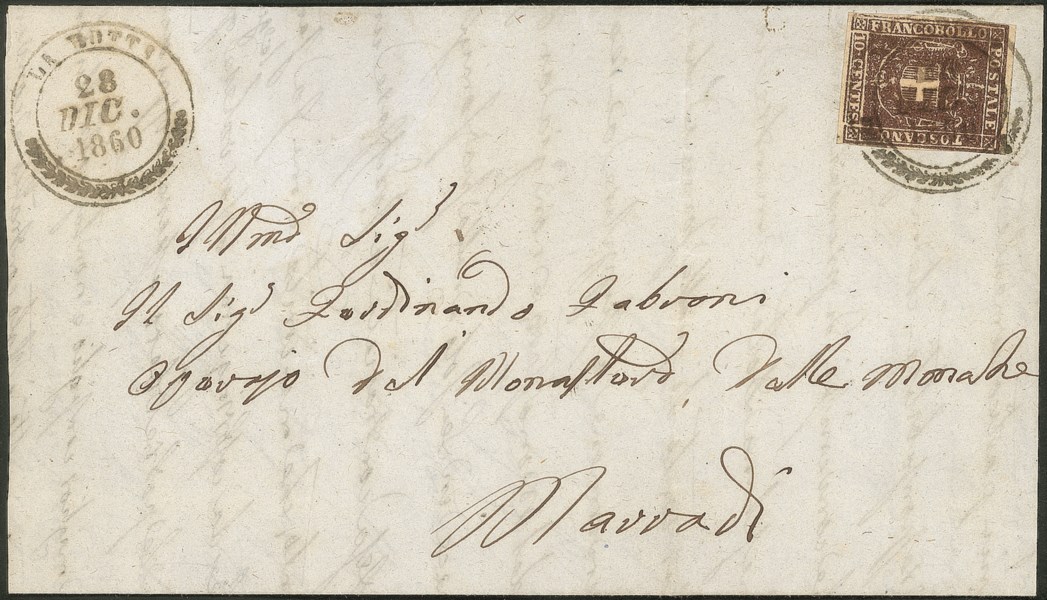 28
DIC.
1860
FRANCOBOLLO
POSTALE
TOSCANO
10 CENTES
Sigʳ
Il Sigʳ Ferdinando Fabroni
Operajo del Monastero delle Monache
Marradi